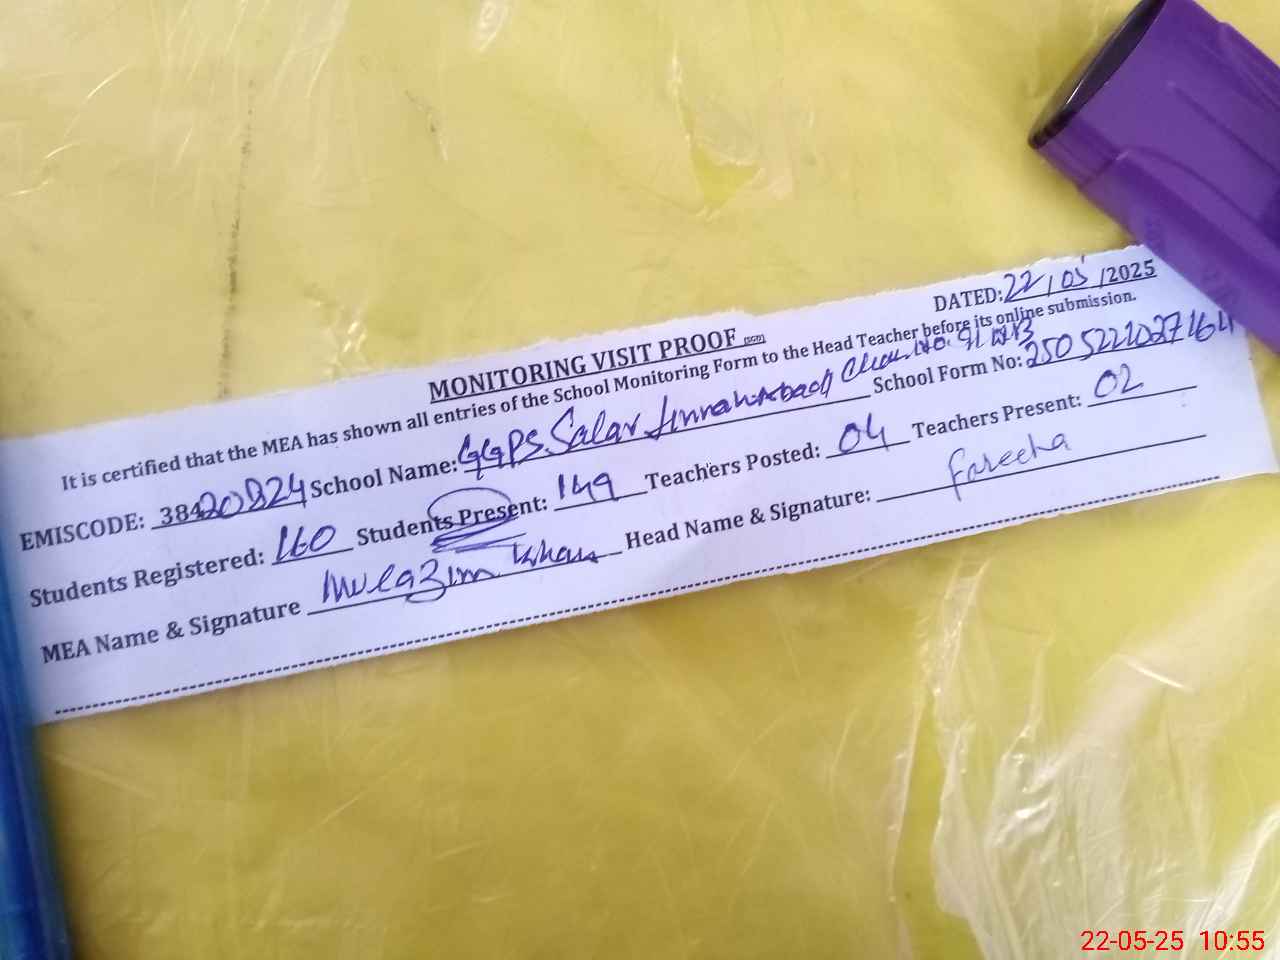 DATED: 22/05/2025
MONITORING VISIT PROOF (SGD)
It is certified that the MEA has shown all entries of the School Monitoring Form to the Head Teacher before its online submission.
EMISCODE: 38420824 School Name: GGPS. Salar Jinnahabad Chak No. 91 School Form No: 25052221027164
Students Registered: 160 Students Present: 149 Teachers Posted: 04 Teachers Present: 02
MEA Name & Signature Mulazim Khan Head Name & Signature: Fareeha
22-05-25 10:55